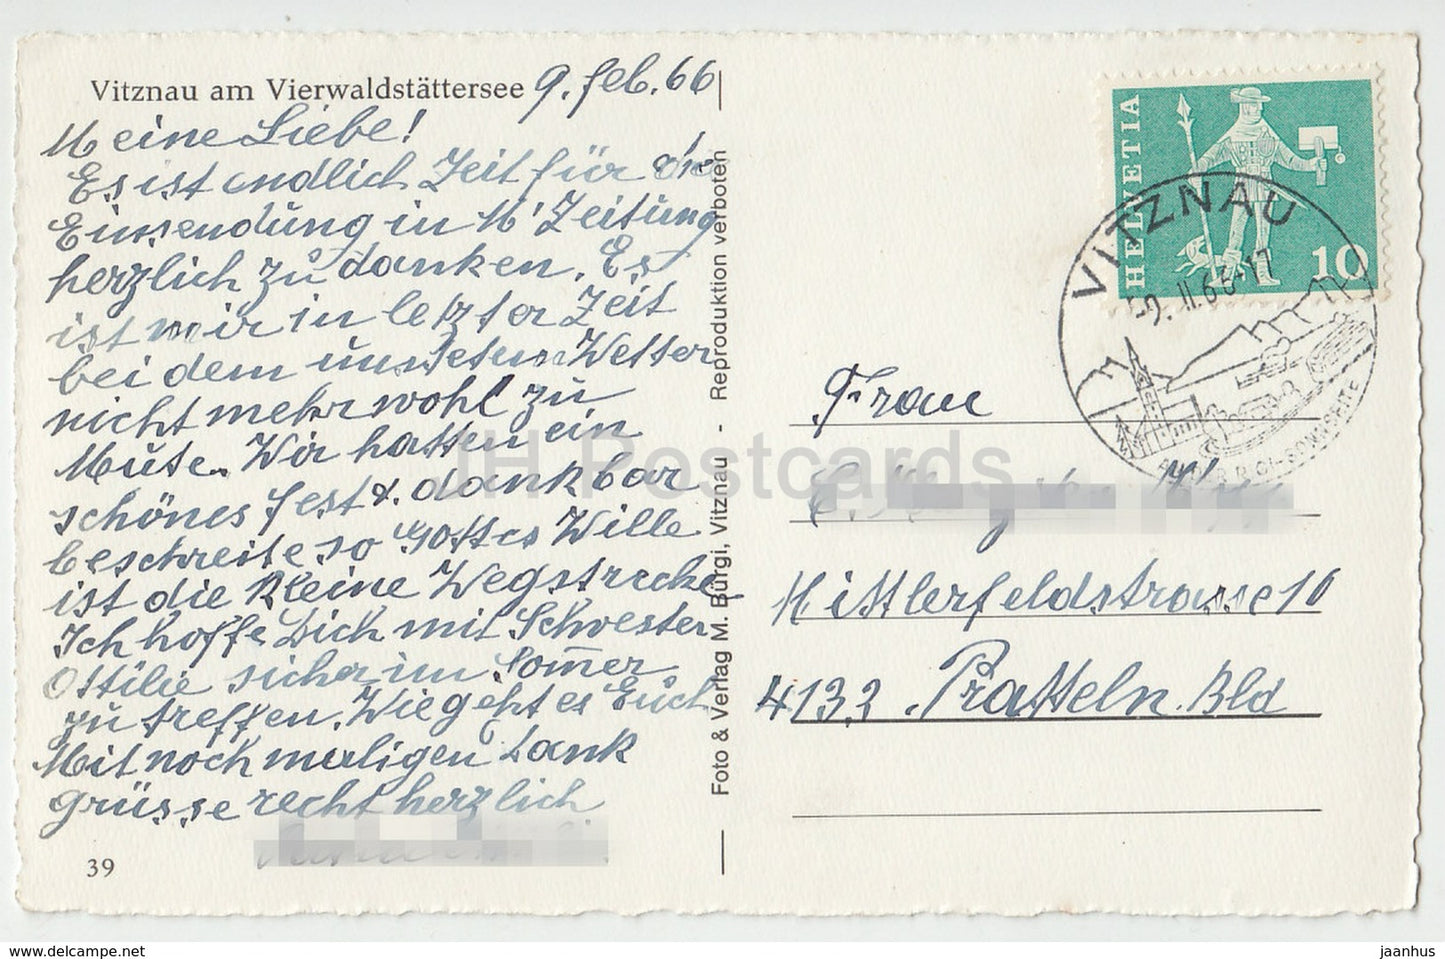 Vitznau am Vierwaldstättersee 9. Feb. 66
Meine Liebe!
Es ist endlich Zeit für die
Einsendung in M' Zeitung
herzlich zu danken. Es
ist mir in letzter Zeit
bei dem unsteten Wetter
nicht mehr wohl zu
Mute. Wir hatten ein
schönes Fest & dankbar
beschreite so Gottes Wille
ist die kleine Wegstrecke
Ich hoffe Dich mit Schwester
Ottilie sicher im Som̅er
zu treffen. Wie geht es Euch
Mit nochmaligen Dank
grüsse recht herzlich
39
Foto & Verlag M. Bürgi, Vitznau - Reproduktion verboten
HELVETIA
10
VITZNAU
-9. II. 66-17
Frau
Mittlerfeldstrasse 16
4132 Pratteln. Bld
JH Postcards
www.delcampe.net
jaanhus